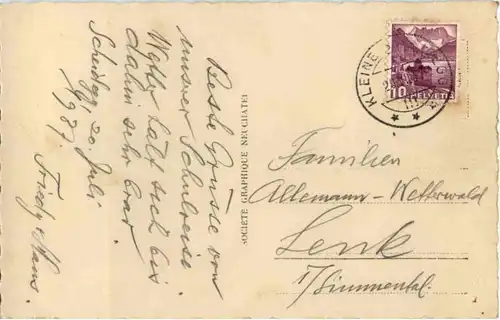 Beste Grüsse von
unsrer Schulreise.
Wetter hält sich bis
dahin sehr brav.
Scheidegg, 20. Juli
1937.
Friedy & Hans.
SOCIÉTÉ GRAPHIQUE NEUCHÂTEL
KLEINE
10
HELVETIA
Familien
Allemann-Wetterwald
Lenk
i/Simmental.